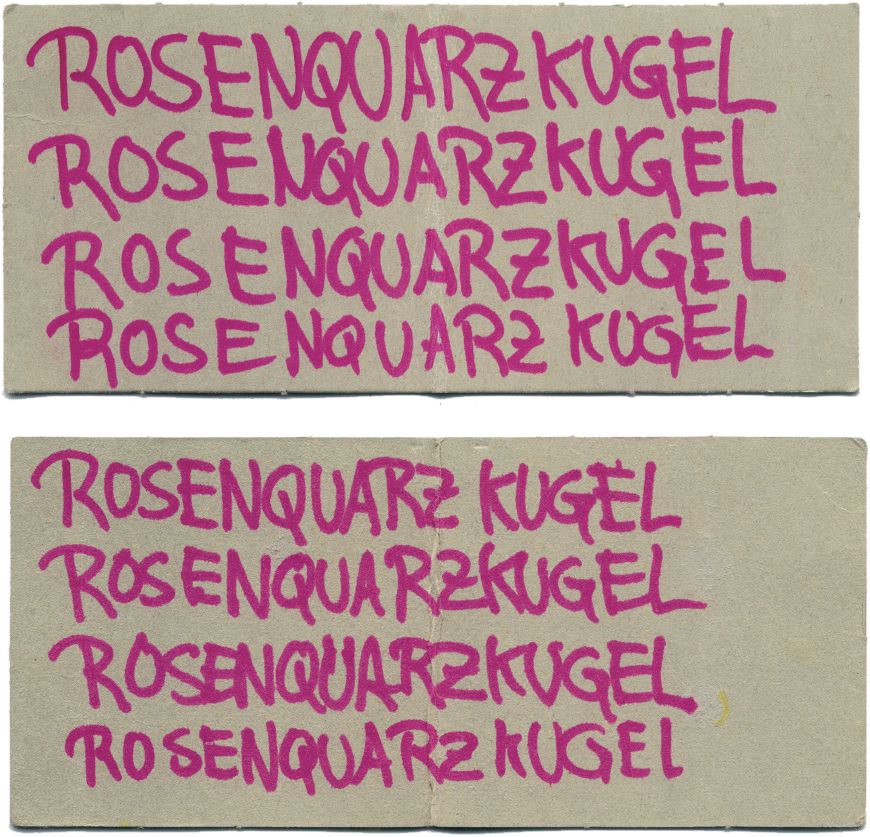 ROSENQUARZKUGEL
ROSENQUARZKUGEL
ROSENQUARZKUGEL
ROSENQUARZ KUGEL
ROSENQUARZ KUGEL
ROSENQUARZKUGEL
ROSENQUARZKUGEL
ROSENQUARZ KUGEL